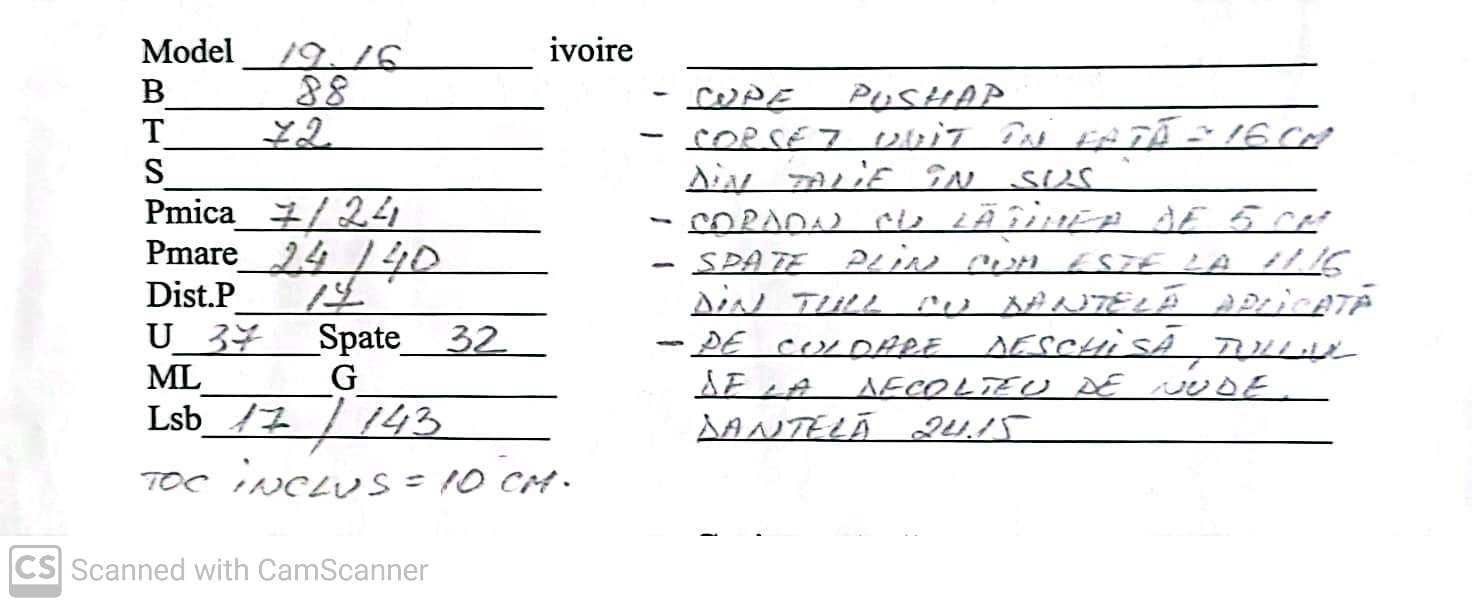 Model 19.16 ivoire
B 88
T 72
S
Pmica 7/24
Pmare 24/40
Dist.P 17
U 37 Spate 32
ML G
Lsb 17 / 143
TOC INCLUS = 10 CM.
- CUPE PUSHAP
- CORSET UNIT ÎN FAȚĂ = 16 CM
DIN TALIE ÎN SUS
- CORDON CU LĂȚIMEA DE 5 CM
- SPATE PLIN CUM ESTE LA 11.16
DIN TULL CU DANTELĂ APLICATĂ
- PE CULOARE DESCHISĂ, TULLUL
DE LA DECOLTEU DE NUDE.
DANTELĂ 24.15
CS Scanned with CamScanner